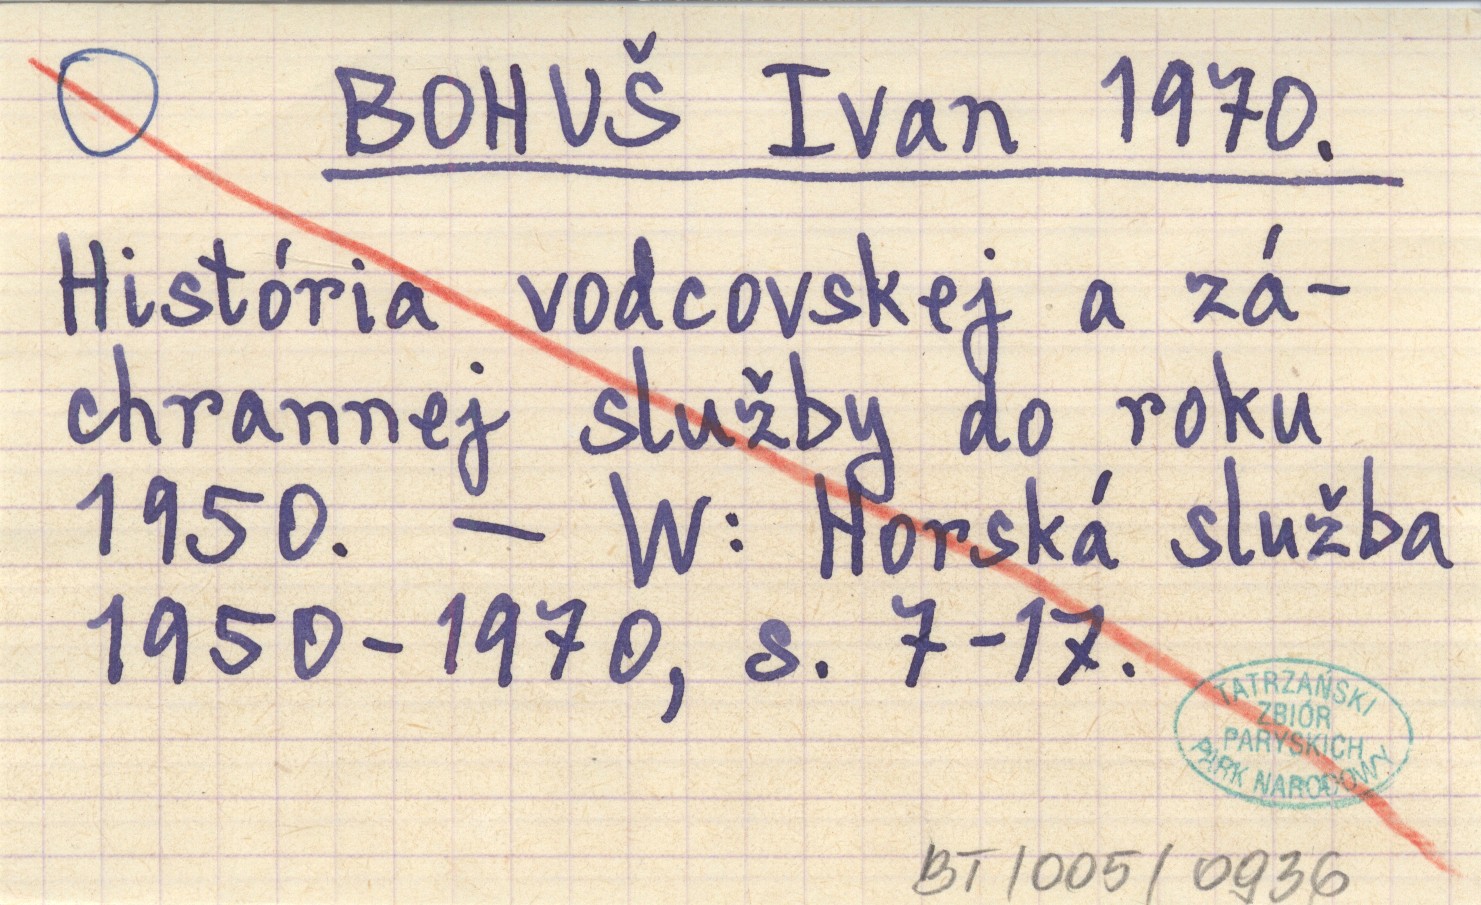 BOHUŠ Ivan 1970.
História vodcovskej a zá-
chrannej služby do roku
1950. — W: Horská služba
1950-1970, s. 7-17.
TATRZAŃSKI
ZBIÓR
PARYSKICH
PARK NARODOWY
BT/005/0936